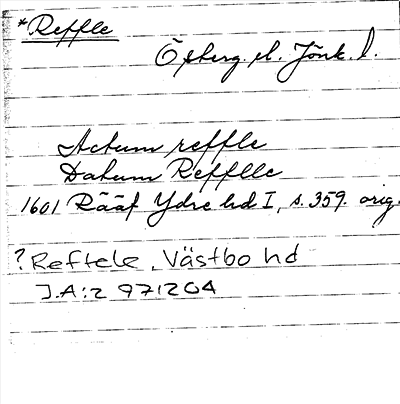 *Reffle
Östberg. el. Jönk. l.
Actum reffle
Datum Refflle
1601 Rääf Ydre hd I, s. 359. orig.
? Reftele, Västbo hd
J.A:z 971204